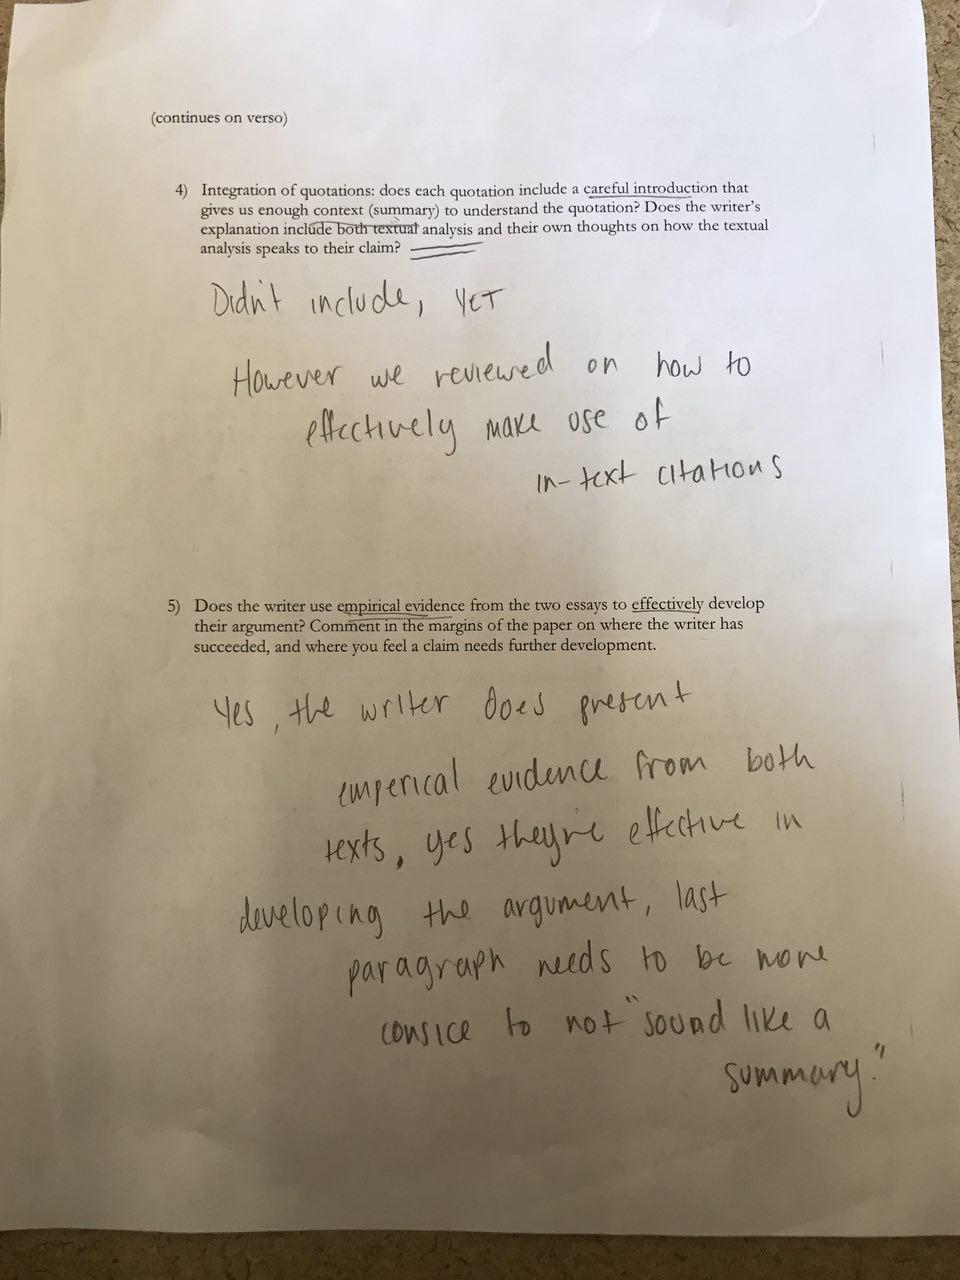 (continues on verso)
4) Integration of quotations: does each quotation include a careful introduction that
gives us enough context (summary) to understand the quotation? Does the writer's
explanation include both textual analysis and their own thoughts on how the textual
analysis speaks to their claim?
Didn't include, yet
However we reviewed on how to
effectively make use of
in-text citations
5) Does the writer use empirical evidence from the two essays to effectively develop
their argument? Comment in the margins of the paper on where the writer has
succeeded, and where you feel a claim needs further development.
Yes, the writer does present
emperical evidence from both
texts, yes they're effective in
developing the argument, last
paragraph needs to be more
consice to not "sound like a
summary."